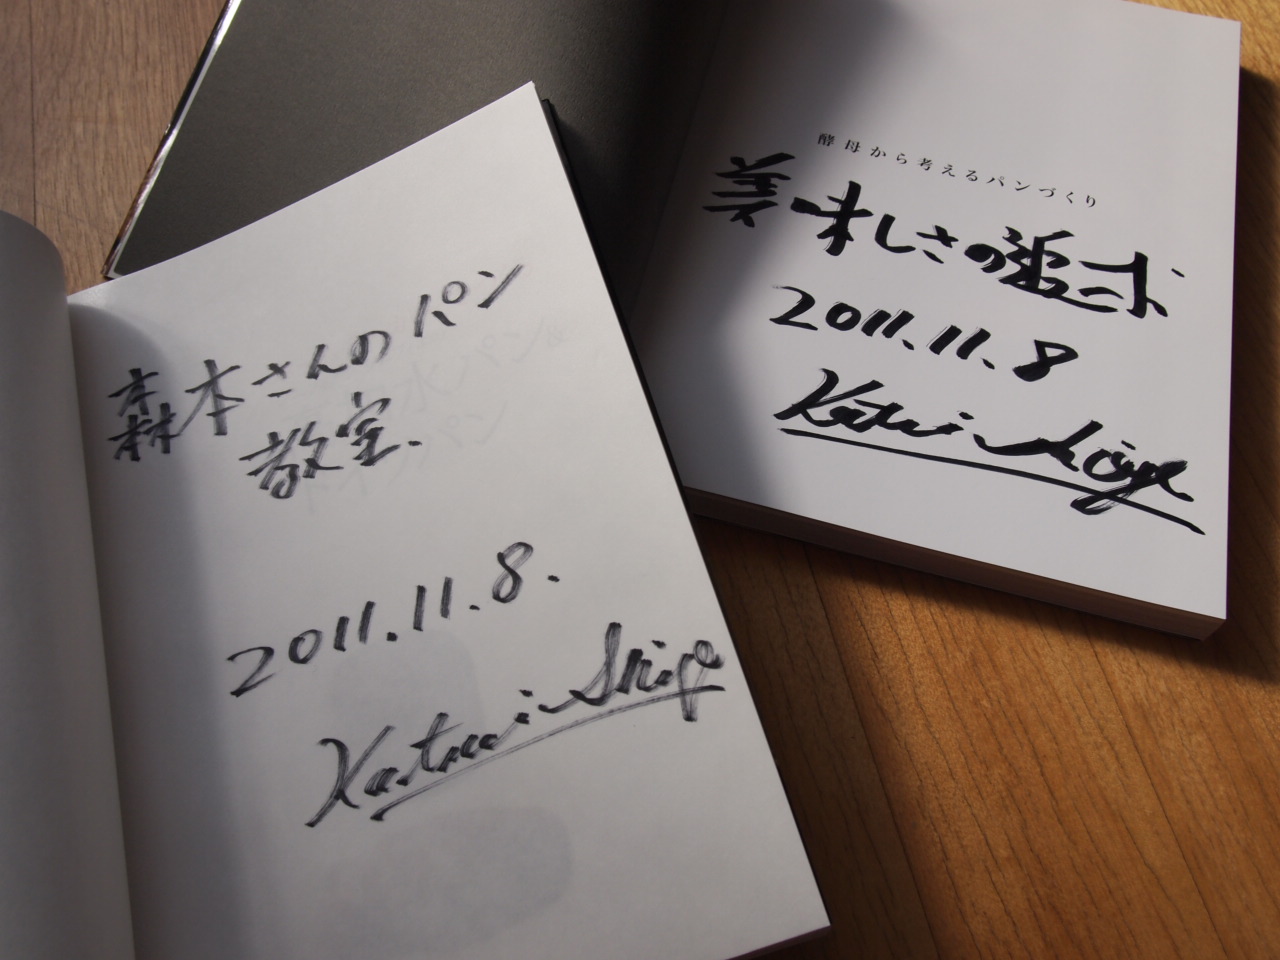 森本さんのパン
教室.
2011.11.8.
酵母から考えるパンづくり
美味しさの追求
2011.11.8